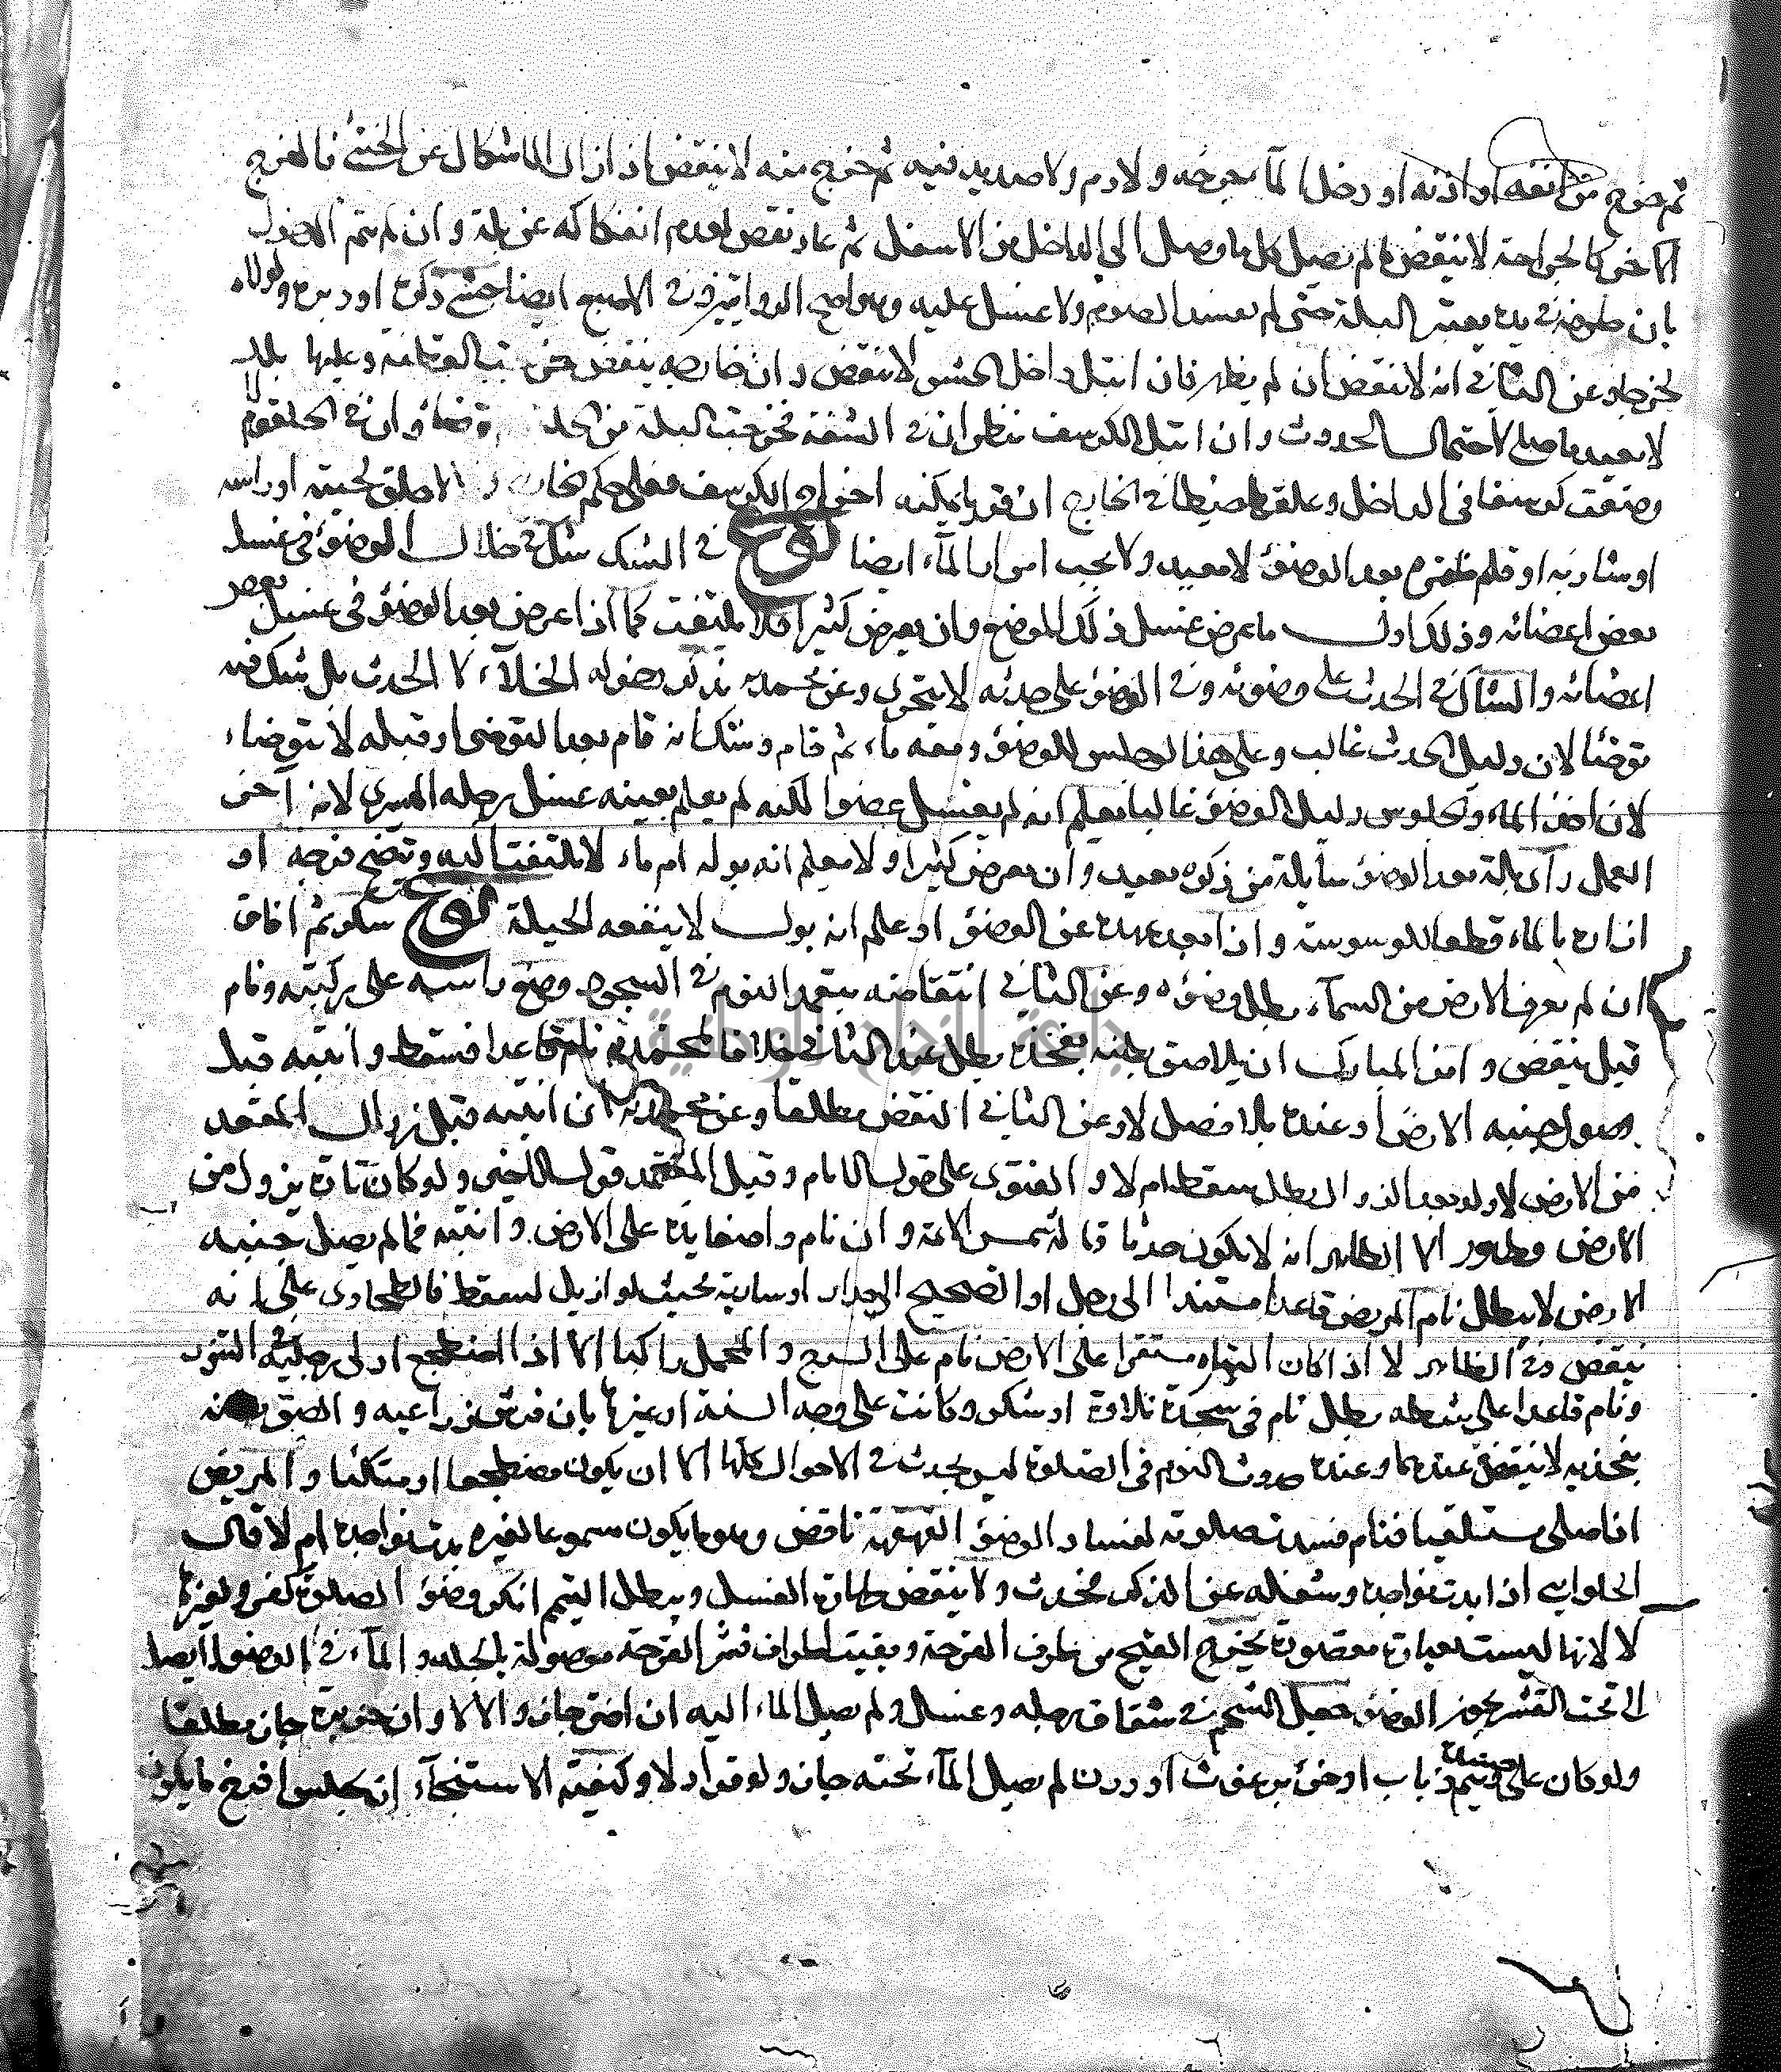 ثم خرج من انفه او اذنه او دخل الماء جرحه ولا دم ولا صديد فيه ثم خرج منه لا ينقض اذا زال الاشكال عن الخنثى فالفرج
الآخر كالجراحة لا ينقض ما لم يصل كل ما وصل الى الداخل من الاسفل ثم عاد نقض لعدم انفكاكه عن بلة وان لم يتم الدخول
بان طرفه في يده يعتبر البلة حتى لم يفسد الصوم ولا غسل عليه وفى الاصبع ايضا حشى ذكره او دبره ولولاه
لخرج وعن الثاني انه لا ينقض ان لم يظهر فان ابتل داخل الحشو لا ينقض وان خارجه ينقض القطنة وعليها بلة
لا يعيد ما صلى لاحتمال الحدوث وان ابتل الكرسف ننظر ان في الشفة فخرجت البلة من الحلقوم
وضعت كرسفا في الداخل وعلق خيطا في الخارج ان قدر ما يمكنه اخراج الكرسف فعلى حكم الخارج حلق لحيته او راسه
او شاربه او قلم ظفره بعد الوضوء لا يعيد ولا يجب امرار الماء ايضا نوع في الشك شك في خلال الوضوء في غسل
بعض اعضائه وذلك اول ما عرض غسل ذلك الموضع وان يعرض كثيرا فلا يلتفت كما اذا عرض بعد الوضوء في غسل بعض
اعضائه والشاك في الحدث على وضوئه وفي الوضوء على حدثه لا يتحرى وعن محمد تذكر دخوله الخلاء لا الحدث بل شك فيه
توضا لان دليل الحدث غالب وعلى هذا لو جلس للوضوء ومعه ماء ثم قام وشك انه قام بعد التوضى او قبله لا يتوضاء
لان اخذ الماء والجلوس دليل الوضوء غالبا يعلم انه لم يغسل عضوا لكنه لم يعلم بعينه غسل رجله اليسرى لانه آخر
العمل رآى بلة بعد الوضوء سايلة من ذكره يعيد وان يعرض كثيرا ولا يعلم انه بول ام ماء لا يلتفت اليه وينضح فرجه او
ازاره بالماء قطعا للوسوسة واذا بعد عهده عن الوضوء او علم انه بول لا ينفعه الحيلة نوع سكر ثم افاق
ان لم يعرف الارض من السماء بطل وضوءه وعن الثاني انتقاضه بتعمد النوم في السجود وضع راسه على ركبتيه ونام
قيل ينقض وابن المبارك ان يلاصق بطنه بفخذه بطل عند الثاني خلافا لمحمد نام قاعدا فسقط وانتبه قبل
وصول جنبه الارض او عنده بلا فصل لا وعن الثاني النقض مطلقا وعن محمد ان انتبه قبل زوال المقعد
من الارض لا ولو بعد الزوال بطل سقط ام لا والفتوى على قول الامام وقيل المعتمد قول الاخير ولو كان تارة يزول من
الارض وطورا لا الظاهر انه لا يكون حدثا قاله شمس الائمة وان نام واضعا يده على الارض وانتبه فما لم يصل جنبه
الارض لا يبطل نام المريض قاعدا مستندا الى رجل او الصحيح الى جدار او سارية بحيث لو ازيل لسقط فالطحاوى على انه
ينقض وفي الظاهر لا اذا كان التهاه مستقرا على الارض نام على السرج والمحمل راكبا الا اذا اضطجع ادلى رجليه التنور
ونام قاعدا على شطه بطل نام في سجدة تلاوة او شكر وكانت على وجه السنة او غيرها بان فرش ذراعيه والصق بطنه
بفخذيه لا ينقض عندهما وعنده حدوث النوم في الصلوة ليس بحدث في الاحوال كلها الا ان يكون مضطجعا او متكئا والمريض
اذا صلى مستلقيا فنام فسدت صلوته لفساد الوضوء القهقهة ناقض وهو ما يكون مسموعا لغيره بدت نواجذه ام لا قال
الحلوانى اذا بدت نواجذه وشغله عن الذكر فحدث ولا ينقض طهارة الغسل ويبطل التيمم انكر وضوء الصلوة كفر ولغيرها
لا لانها ليست بعبادة مقصودة يخرج القيح من طرف القرحة وبقيت اطراف قشر القرحة موصولة بالجلد والماء في الوضوء لا يصل
الى تحت القشر يجوز الوضوء جعل الشحم في شقاق رجله وغسل ولم يصل الماء اليه ان اضر جاز والا لا وان خرزه جاز مطلقا
ولو كان على ونيم ذباب او خرء برغوث او درن لم يصل الماء تحته جاز ولو قراد لا وكيفية الاستنجاء ان يجلس افرج ما يكون
جامعة النجاح الوطنية